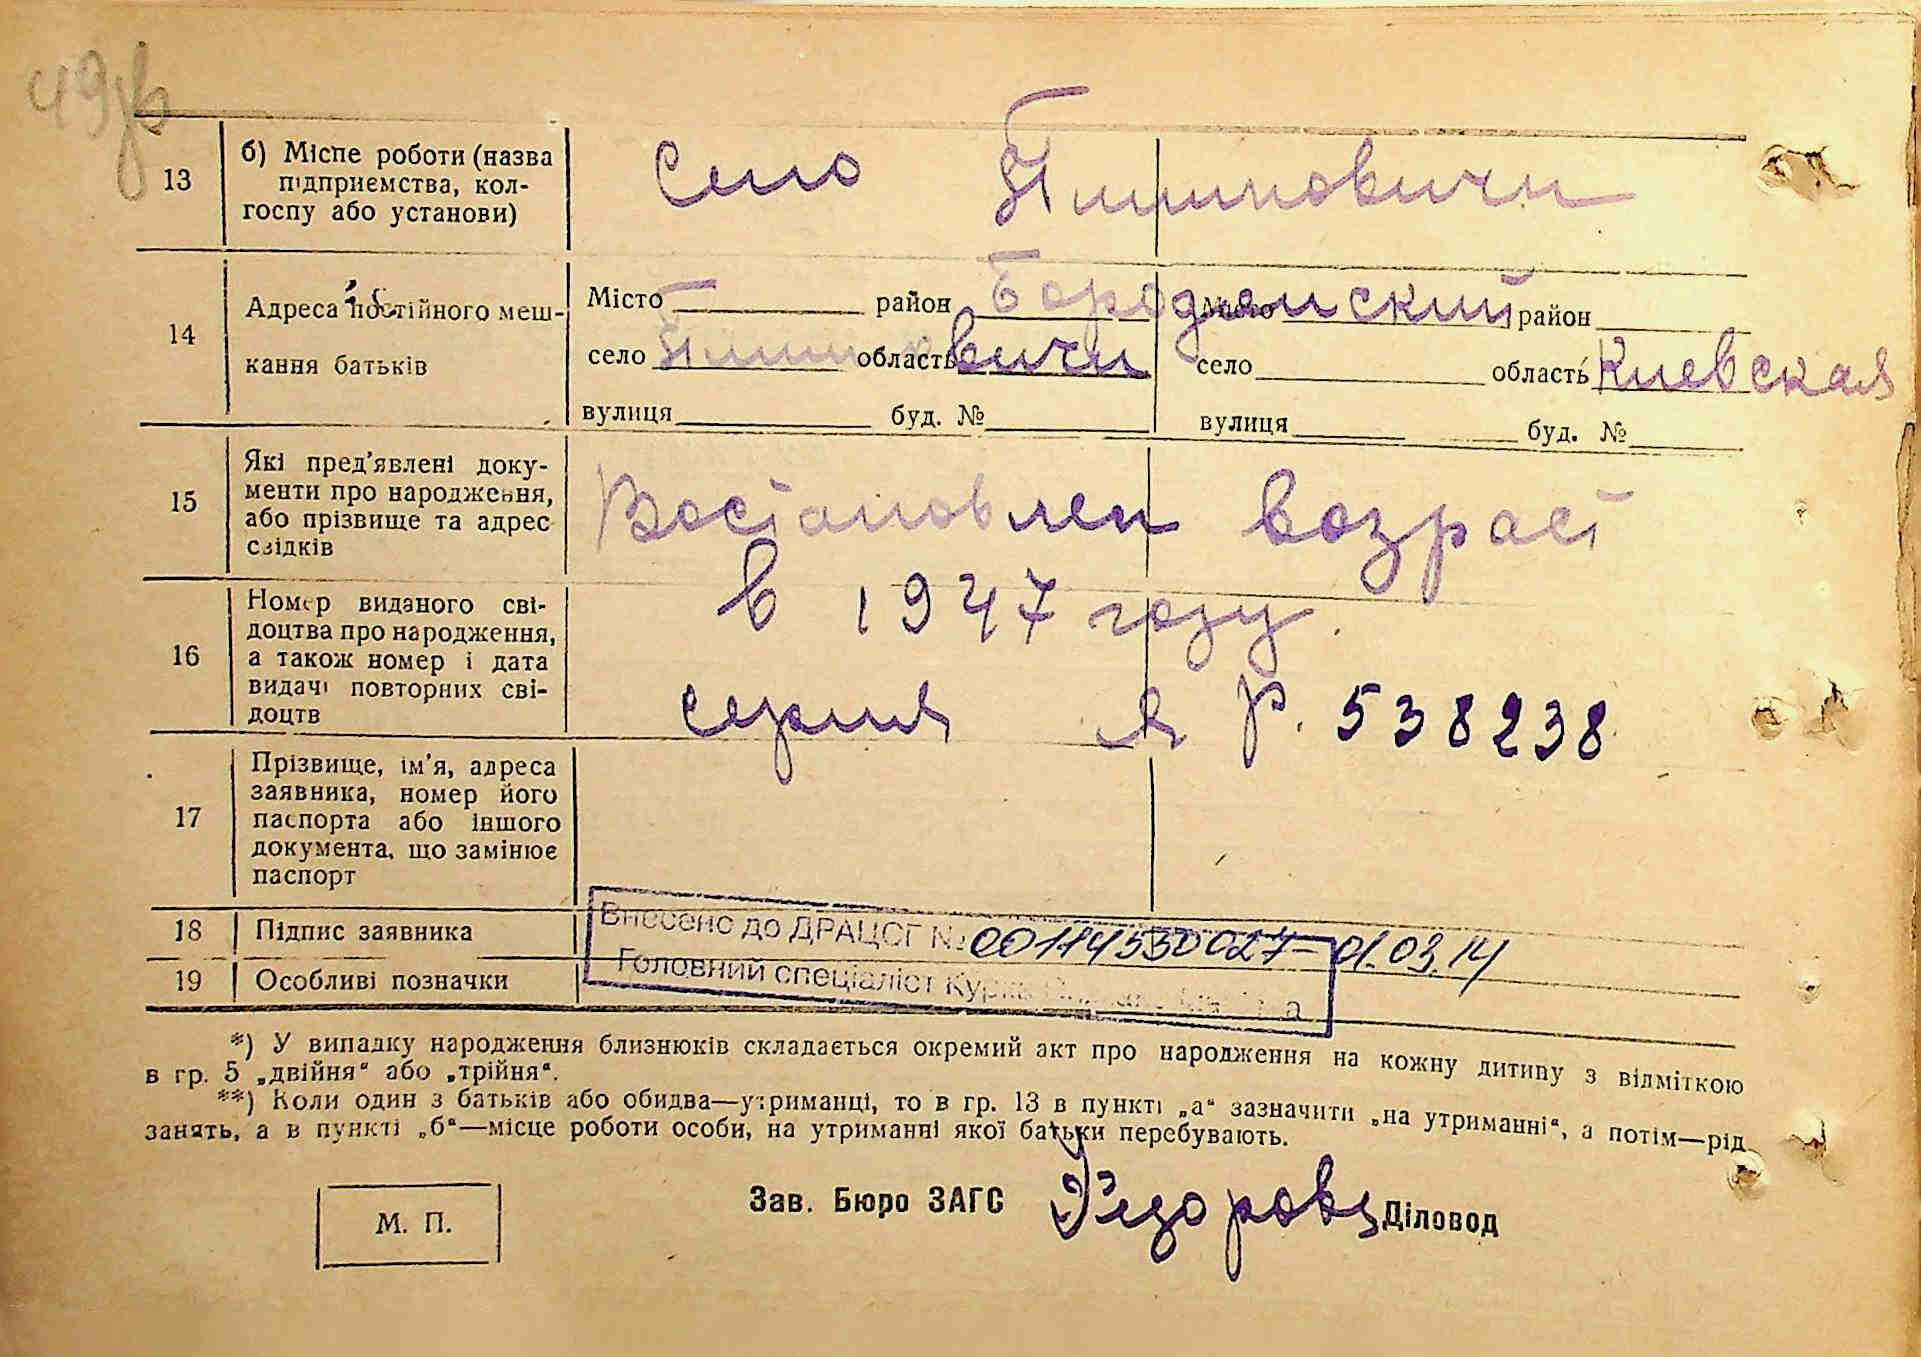 49
13 б) Місце роботи (назва підприємства, колгоспу або установи) Село Пилиповичи
14 Адреса постійного мешкання батьків
Місто район Бородянский Місто район
село Пилиповичи область село область Киевская
вулиця буд. № вулиця буд. №
15 Які пред'явлені документи про народження, або прізвище та адрес свідків Востановлен возраст
в 1947 году.
16 Номер виданого свідоцтва про народження, а також номер і дата видачі повторних свідоцтв серия я р. 538238
17 Прізвище, ім'я, адреса заявника, номер його паспорта або іншого документа, що замінює паспорт
18 Підпис заявника
Внесено до ДРАЦСГ № 00114530027 01.03.14
19 Особливі позначки
Головний спеціаліст
*) У випадку народження близнюків складається окремий акт про народження на кожну дитину з відміткою
в гр. 5 „двійня“ або „трійня“.
**) Коли один з батьків або обидва—утриманці, то в гр. 13 в пункті „а“ зазначити „на утриманні“, а потім—рід
занять, а в пункті „б“—місце роботи особи, на утриманні якої батьки перебувають.
Зав. Бюро ЗАГС Діловод
М. П.